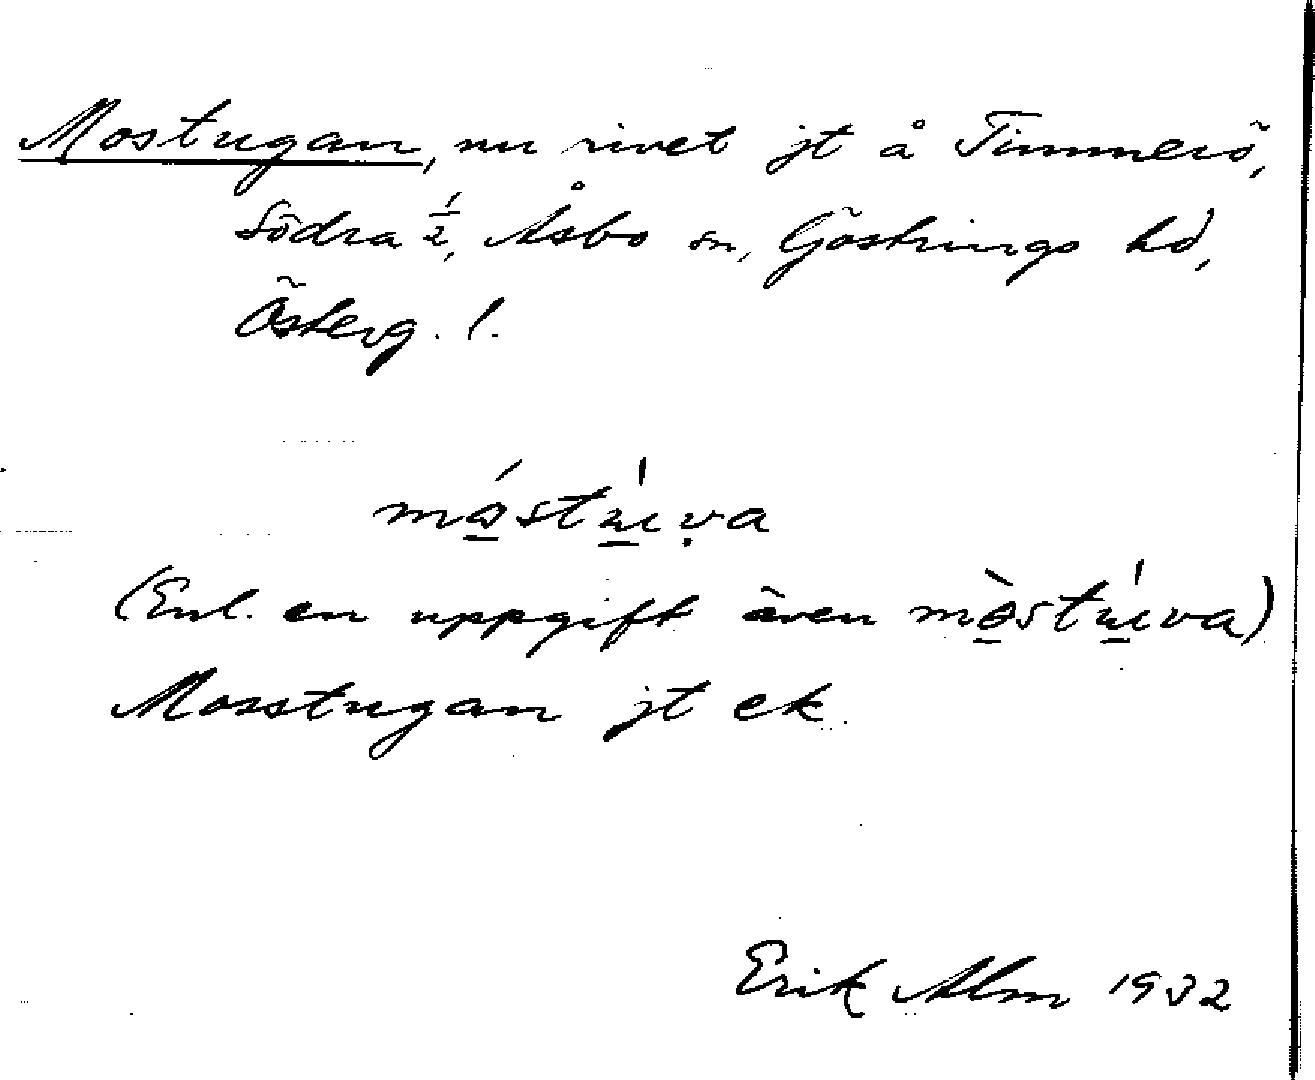 Mostugan, nu rivet jt å Timmerö,
Södra ½, Åsbo sn, Göstrings hd,
Österg. l.
móstu̍va
(Enl. en uppgift även mòstu̍va)
Mosstugan jt ek.
Erik Alm 1932